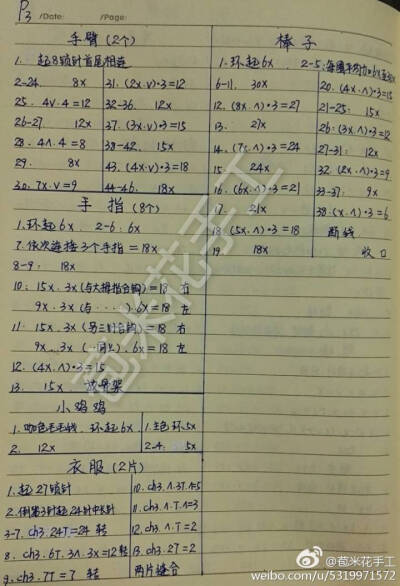 P3
/Date: /Page:
手臂(2个)
1. 起8锁针首尾相连
2-24. 8x
25. 4V.4=12
26-27. 12x
28. 4∧.4=8
29. 8x
30. 7x.V=9
31. (2x.V)•3=12
32-36. 12x
37. (3x.V)•3=15
38-42. 15x
43. (4x.V)•3=18
44-46. 18x
手指(8个)
1. 环起6x. 2-6: 6x
7. 依次连接3个手指=18x
8-9: 18x
10: 15x.3x(与大拇指合钩)=18 右
9x.3x(与·····).6x=18 左
11: 15x.3x(另三针合钩)=18 右
9x.3x(··同上).6x=18 左
12. (4x.∧)•3=15
13. 15x 放骨架
小鸡鸡
1. 咖色毛毛线. 环起6x
2. 12x
1. 主色环5x
2-4: 5x
衣服(2片)
1. 起27锁针
2. 倒第3针起24针中长针
3-7. ch3.24T=24 转
8. ch3.6T.3∧.3x=12 转
9. ch3.7T=7 转
10. ch3.∧.3T.1=5
11. ch3.∧.T.∧=3
12. ch3.∧.T=2
13. ch3.2T=2
两片缝合
棒子
1. 环起6x. 2-5: 每圈平均加6x
6-11. 30x
12. (8x.∧)•3=27
13. 27x
14. (7x.∧)•3=24
15. 24x
16. (6x.∧)•3=21
17. 21x
18. (5x.∧)•3=18
19. 18x
20. (4x.∧)•3=15
21-25: 15x
26: (3x.∧)•3=12
27-31: 12x
32. (2x.∧)•3=9
33-37: 9x
38. (x.∧)•3=6
断线
收口
苞米花手工
@苞米花手工
weibo.com/u/5319971572